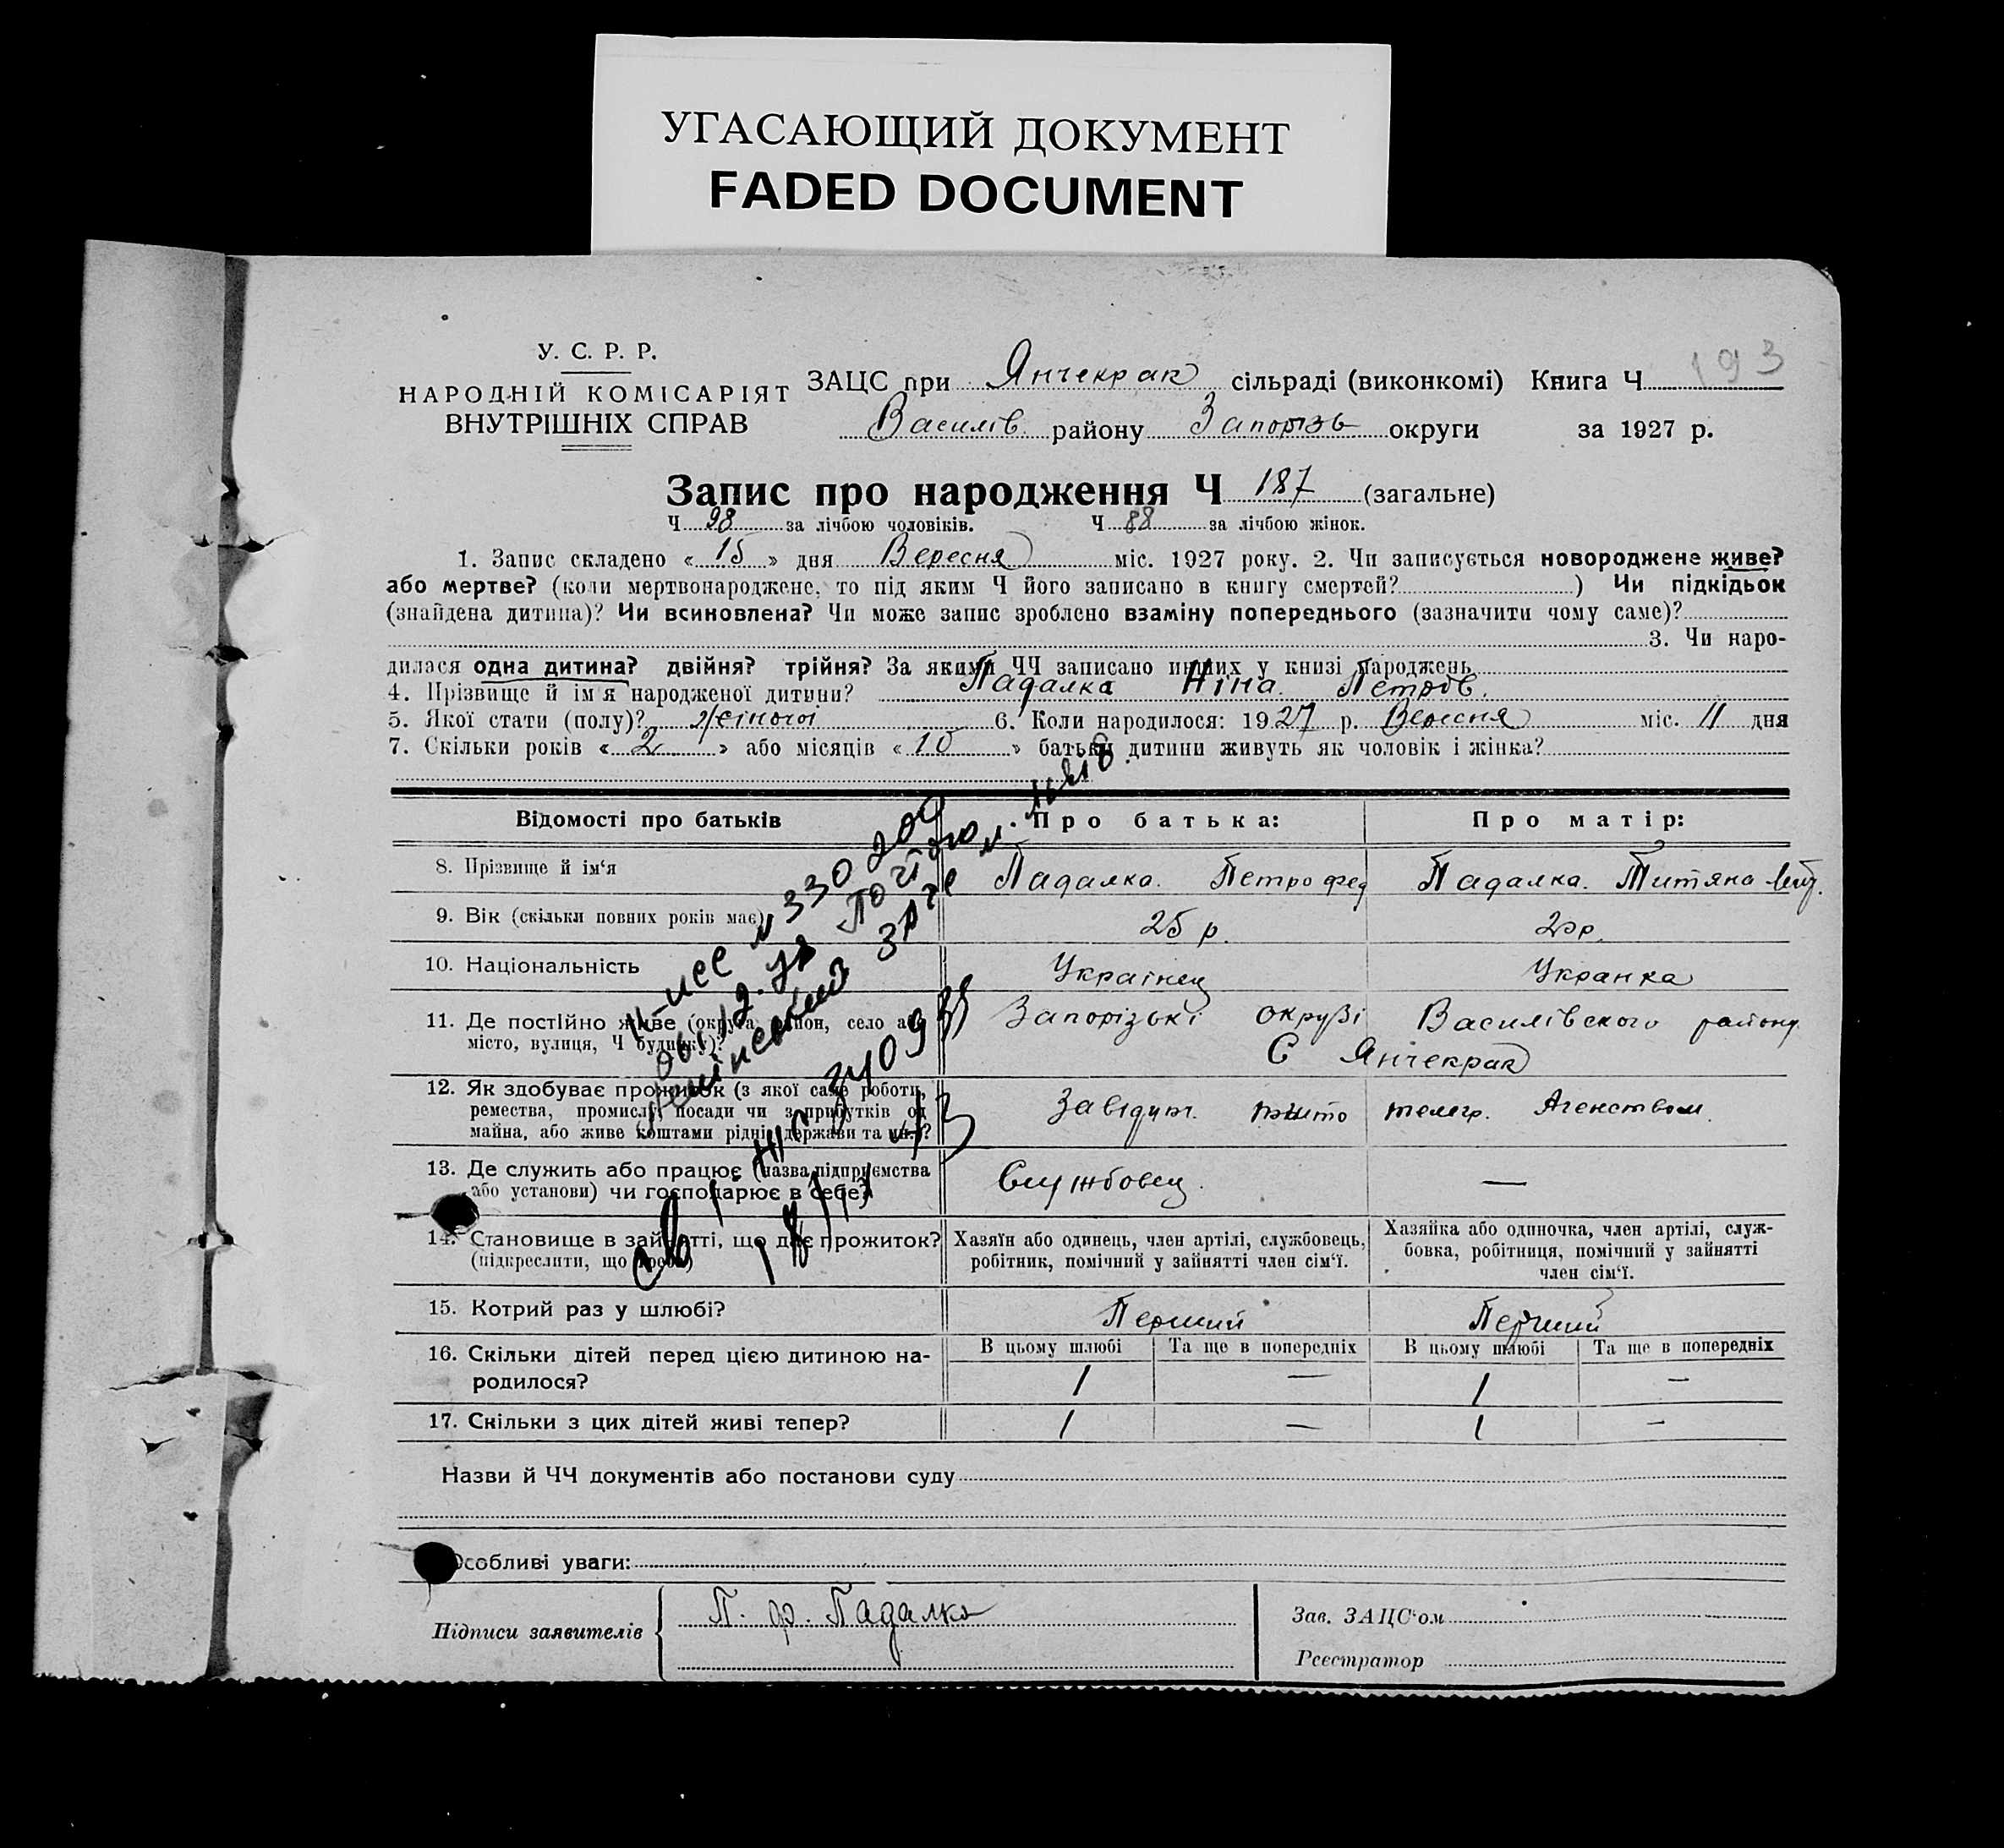 УГАСАЮЩИЙ ДОКУМЕНТ
FADED DOCUMENT
У. С. Р. Р.
НАРОДНІЙ КОМІСАРІЯТ
ВНУТРІШНІХ СПРАВ
ЗАЦС при Янчекрак сільраді (виконкомі) Книга Ч 193
Василів району Запоріз округи за 1927 р.
Запис про народження Ч 187 (загальне)
Ч 98 за лічбою чоловіків. Ч 88 за лічбою жінок.
1. Запис складено « 15 » дня Вересня міс. 1927 року. 2. Чи записується новороджене живе?
або мертве? (коли мертвонароджене, то під яким Ч його записано в книгу смертей? ) Чи підкідьок
(знайдена дитина)? Чи всиновлена? Чи може запис зроблено взаміну попереднього (зазначити чому саме)?
3. Чи наро-
дилася одна дитина? двійня? трійня? За якими ЧЧ записано инших у книзі народжень
4. Прізвище й ім'я народженої дитини? Падалка Ніна Петров.
5. Якої стати (полу)? жіночої 6. Коли народилося: 1927 р. Вересня міс. 11 дня
7. Скільки років « 2 » або місяців « 10 » батьки дитини живуть як чоловік і жінка?
Відомості про батьків Про батька: Про матір:
8. Прізвище й ім'я Падалка. Петро Фед Падалка. Титяна
9. Вік (скільки повних років має) 25 р.
10. Національність Українец Укранка
11. Де постійно живе (округа, район, село або Запорізькі окрузі Василівского району
місто, вулиця, Ч будинку)? С Янчекрак
12. Як здобуває прожиток (з якої саме роботи, Завідуюч. пошто телегр. Агенством.
ремества, промислу, посади чи з прибутків од
майна, або живе коштами рідні, держави та ин.)?
13. Де служить або працює (назва підприємства Службовец. —
або установи) чи господарює в себе?
14. Становище в зайнятті, що дає прожиток? Хазяїн або одинець, член артілі, службовець, Хазяйка або одиночка, член артілі, служ-
(підкреслити, що треба) робітник, помічний у зайнятті член сім'ї. бовка, робітниця, помічний у зайнятті
член сім'ї.
15. Котрий раз у шлюбі? Перший Перший
16. Скільки дітей перед цією дитиною на- В цьому шлюбі Та ще в попередніх В цьому шлюбі Та ще в попередніх
родилося? 1 — 1 —
17. Скільки з цих дітей живі тепер? 1 — 1 —
Назви й ЧЧ документів або постанови суду
Особливі уваги:
Підписи заявителів П. Ф. Падалка
Зав. ЗАЦС'ом
Реєстратор